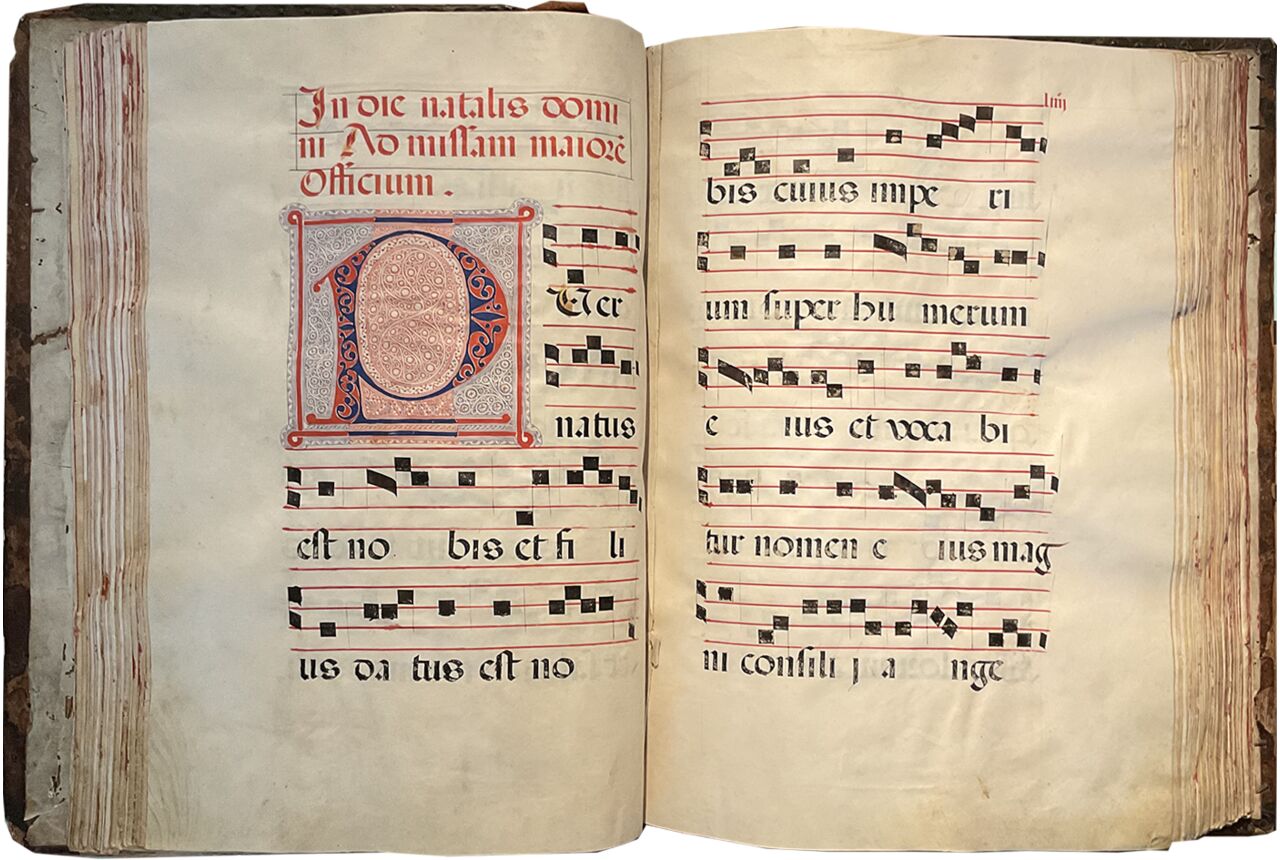 In die natalis domi
ni Ad missam maiorē
Officium.
P
Uer
natus
est no bis et fi li
us da tus est no
liiij
bis cuius impe ri
um super hu merum
e ius et voca bi
tur nomen e ius mag
ni consili j a nge